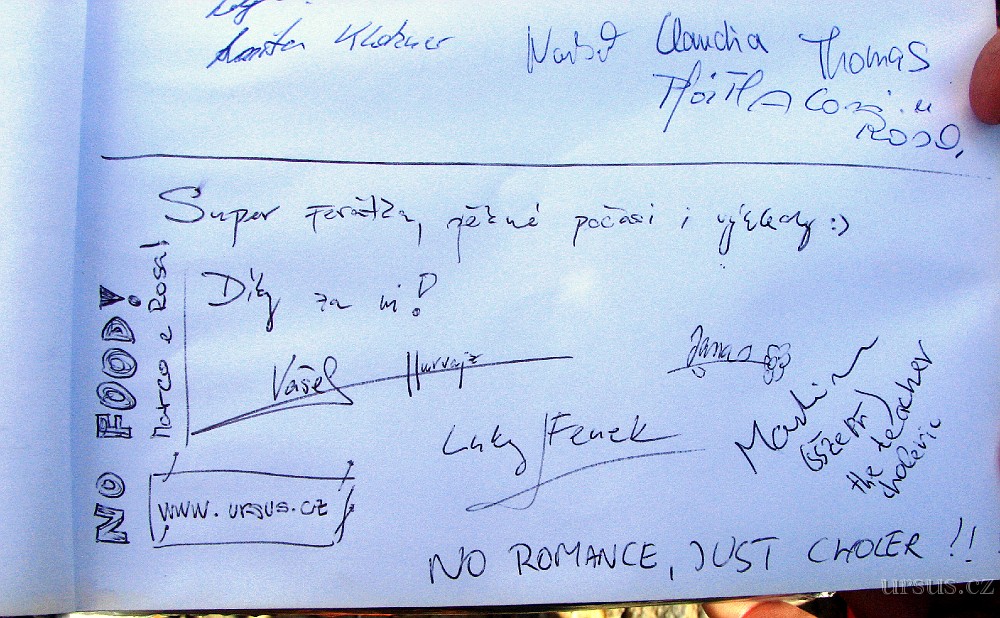 Klotzner
Norbert Claudia Thomas
Super Ferátka, pěkné počasí i výhledy :)
Díky za ni!
NO FOOD!
Marco e Rosa!
Vašek Hurvajz
Jana
Luky Fenek
Martin
the teacher
choleric
www.ursus.cz
NO ROMANCE, JUST CHOLER !!
ursus.cz